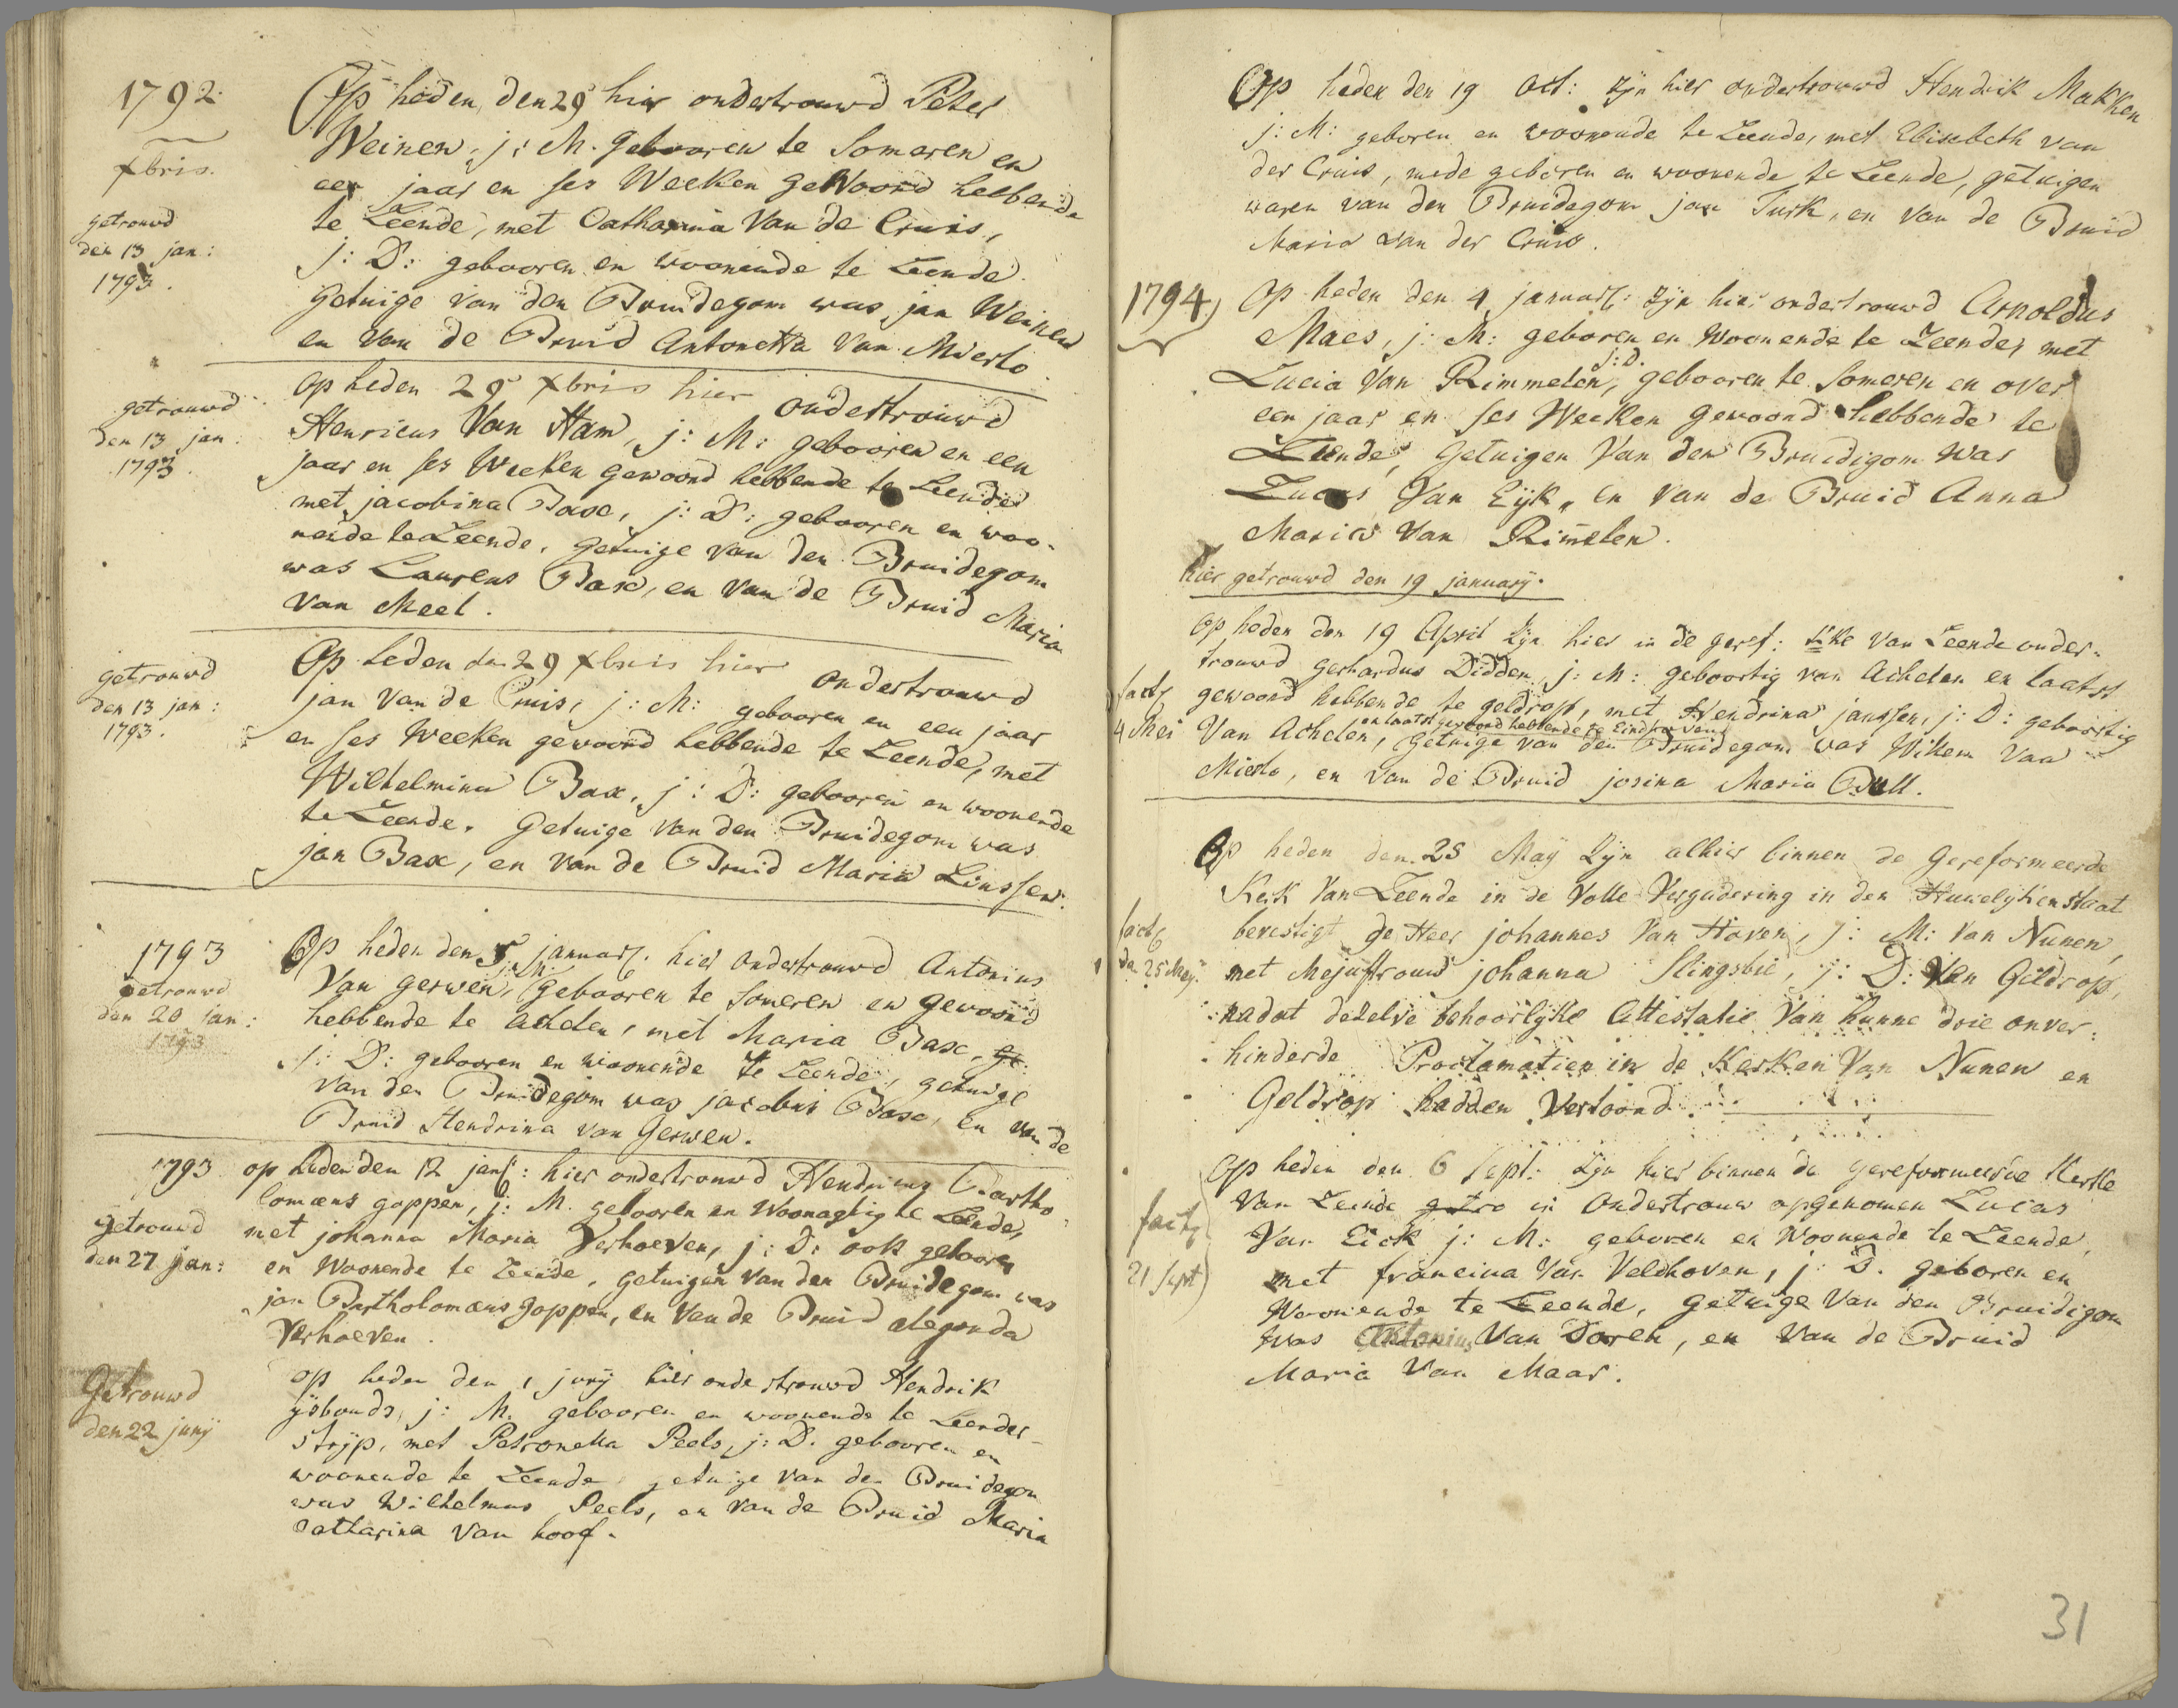 1792
xbris.
getrouwd
den 13 jan:
1793.
Op heden, den 29 hier ondertrouwd Peter
Weinen, j: M. gebooren te Someren en
een jaar en ses Weeken geWoond hebbende
te Leende, met Catharina Van de Cruis,
j: D: gebooren en woonende te Leende.
Getuige van den Bruidegom was, jan Weinen
en van de Bruid Antonetta Van Mierlo.
getrouwd
den 13 jan:
1793.
Op heden 29 xbris hier ondertrouwd
Henricus Van Ham, j: M: gebooren en een
jaar en ses Weeken gewoond hebbende te Leende
met jacobina Bax, j: D: gebooren en woo-
nende te Leende, getuige van den Bruidegom
was Laurens Bax, en van de Bruid Maria
van Meel.
getrouwd
den 13 jan:
1793.
Op heden den 29 xbris hier ondertrouwd
jan Van de Cruis, j: M: gebooren en een jaar
en ses Weeken gewoond hebbende te Leende, met
Wilhelmina Bax, j: D: gebooren en woonende
te Leende. Getuige van den Bruidegom was
jan Bax, en van de Bruid Maria Linssen.
1793
getrouwd
den 20 jan:
1793
Op heden den 5 januar. hier ondertrouwd Antonius
Van Gerwen, j: M: gebooren te Someren en gewoond
hebbende te Achelen, met Maria Bax, ge
j: D: gebooren en woonende te Leende, getuige
van den Bruidegom was jacobus Bax, en van de
Bruid Hendrina van Gerwen.
1793
getrouwd
den 27 jan:
op heden den 12 jan: hier ondertrouwd Hendricus Bartho
lomæus goppen, j: M. gebooren en Woonagtig te Leende,
met johanna Maria Verhoeven, j: D: ook gebooren
en Woonende te Leende, getuigen van den Bruidegom was
jan Bartholomæus goppen, en van de Bruid Alegonda
Verhoeven.
Getrouwd
den 22 junij
op heden den 1 junij hier ondertrouwd Hendrik
ijsbouds, j: M. gebooren en woonende te Leender-
strijp, met Petronella Peels, j: D. gebooren en
woonende te Leende getuige van den Bruidegom
was Wilhelmus Peels, en van de Bruid Maria
Catharina Van hoof.
Op heden den 19 Oct: zijn hier ondertrouwd Hendrik Makken
j: M: geboren en woonende te Leende, met Elisabeth van
der Cruis, mede geboren en woonende te Leende, getuigen
waren van den Bruidegom jan Turk, en van de Bruid
Maria van der Cruis.
1794
Op heden den 4 januar: zijn hier ondertrouwd Arnoldus
Maes, j: M: geboren en Woonende te Leende, met
Lucia Van Rimmelen, j: D. gebooren te Someren en over
een jaar en ses Weeken gewoond hebbende te
Leende, Getuigen Van den Bruidigom Was
Lucas Van Eijk, en van de Bruid Anna
Maria Van Rim̄elen.
hier getrouwd den 19 januarij.
Op heden den 19 April zijn hier in de geref: Kke van Leende onder-
trouwd gerhardus Didden, j: M: geboortig van Achelen en laatst
fact
4 Mei
gewoond hebbende te geldrop, met Hendrina janssen, j: D: geboortig
en laatst gewoond hebbende te Eindhoven
Van Achelen, getuige van den Bruidegom was Willem Van
Mierlo, en van de Bruid josina Maria Bull.
Op heden den 25 Maij zijn alhier binnen de Gereformeerde
Kerk Van Leende in de Volle Vergadering in den Huwelijken staat
fact
den 25 Meij.
bevestigt de Heer johannes Van Hoven, j: M: van Nunen,
met Mejuffrouw johanna Slingsbie, j: D: Van Geldrop,
nadat deselve behoorlijke Attestatie Van hunne drie onver-
hinderde Proclamatien in de Kerken Van Nunen en
Geldrop hadden Vertoond.
Op heden den 6 Sept: zijn hier binnen de gereformeerde Kerke
Van Leende getro in Ondertrouw opgenomen Lucas
fact
21 Sept
Van Eick j: M: geboren en Woonende te Leende,
met francina Van Veldhoven, j: D. geboren en
Woonende te Leende, getuige Van den Bruidigom
was Antonius Van Doren, en Van de Bruid
Maria Van Maar.
31